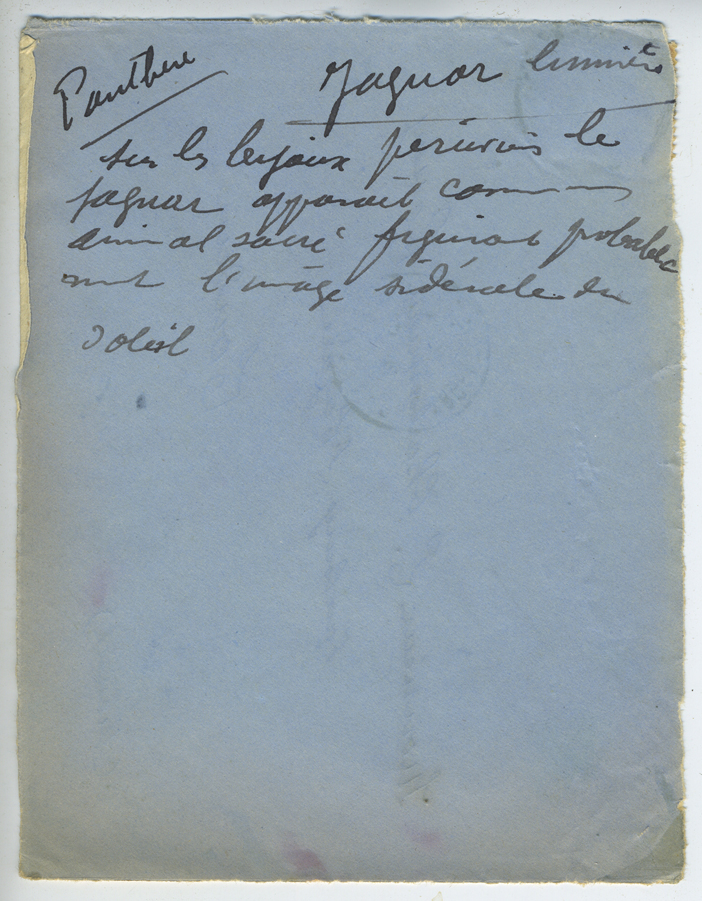 Panthère
Jaguar lumière
sur les bijoux péruviens le
jaguar apparait comme un
animal sacré figurant probable
ment l'image sidérale du
soleil